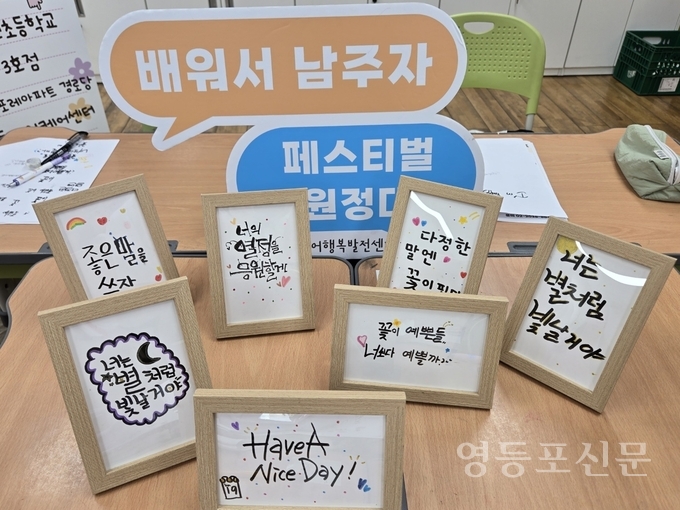 초등학교
3호점
포레아파트 경로당
케어센터
배워서 남주자
페스티벌
원정대
어행복발전센
좋은말을
쓰자
너의
열정을
응원할게
다정한
말엔
꽃이 피
너는
별처럼
빛날거야
너는
별처럼
빛날거야
꽃이 예쁜들,
너보다 예쁠까..
Have A
Nice Day!
19
영등포신문